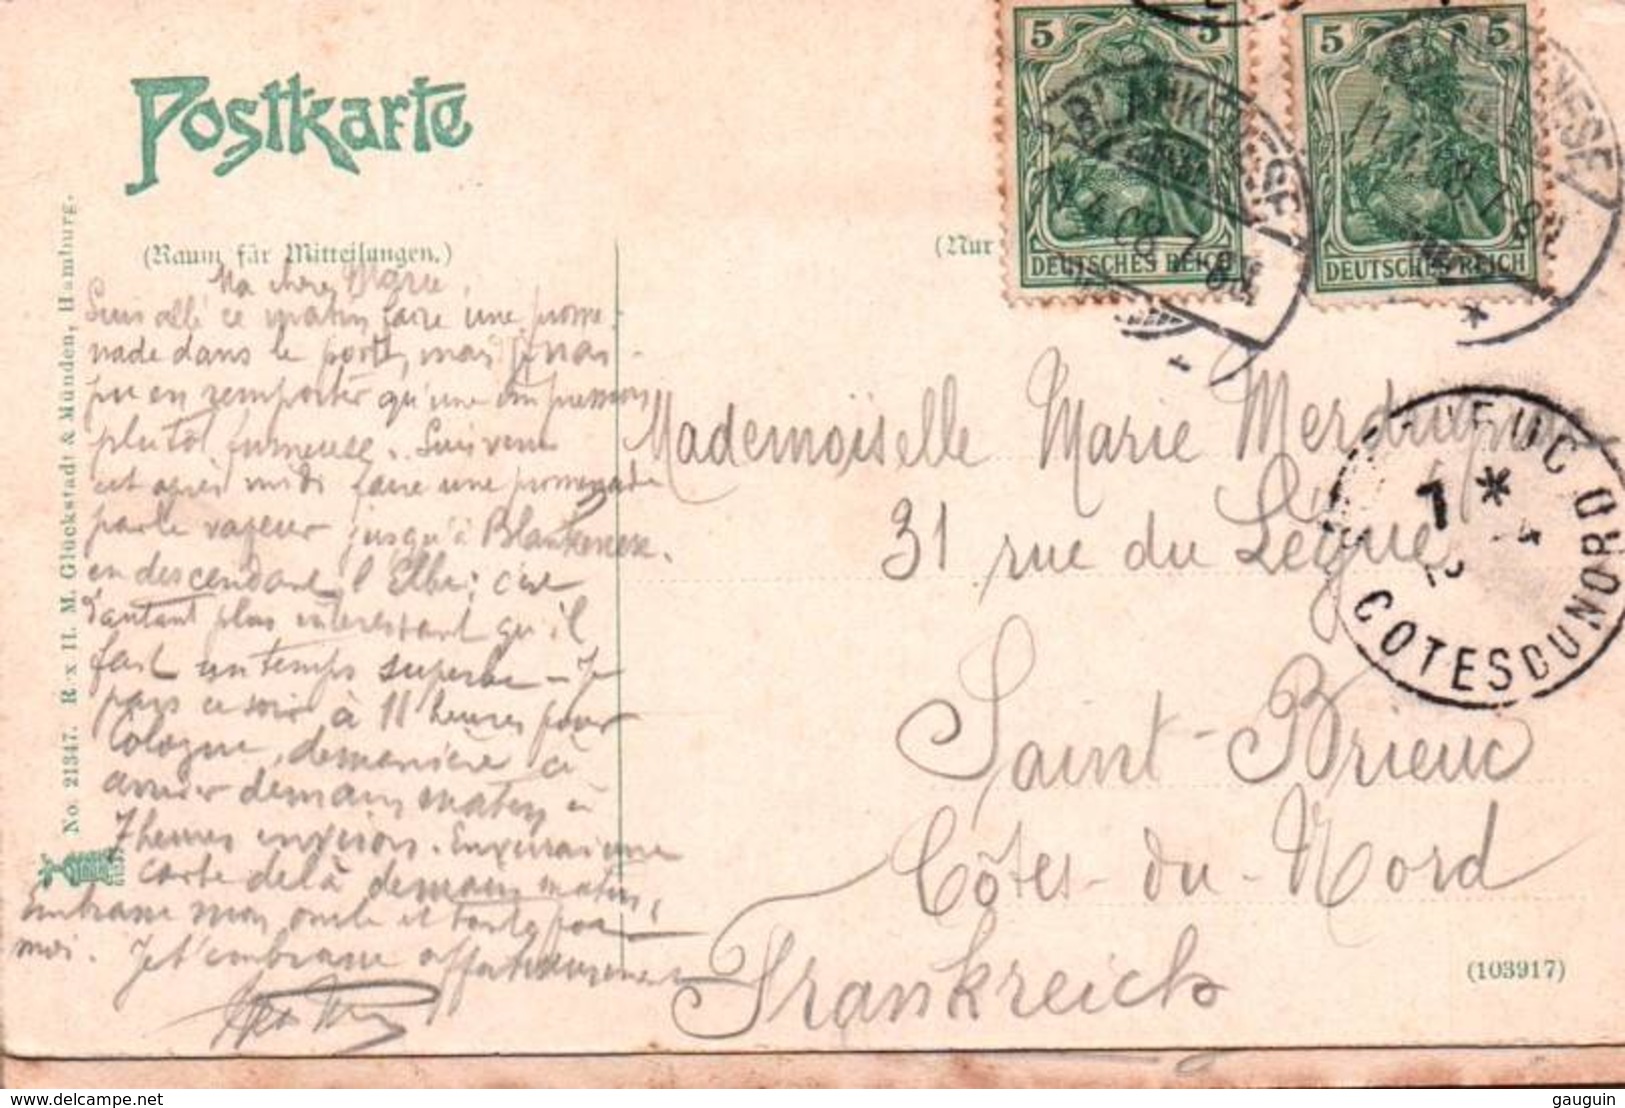 Postkarte
(Raum für Mitteilungen.)
(Nur
No. 21347. R. x II. M. Glückstadt & Münden, Hamburg.
5 5
DEUTSCHES REICH
5 5
DEUTSCHES REICH
BLANKENESE
11.4.08.7-8N.
BLANKENESE
Ma chère Marie,
Suis allé ce matin faire une prome-
nade dans le port, mais n'en ai
pu en remporter qu'une impression
plutôt fumeuse. Suis venu
cet après midi faire une promenade
par le vapeur jusqu'à Blankenese
en descendant l'Elbe; c'est
d'autant plus intéressant qu'il
fait un temps superbe – Je
pars ce soir à 11 heures pour
Cologne, de manière à
arriver demain matin à
7 heures environ. Enverrai une
carte de là demain matin,
Embrasse mon oncle et tante pour
moi. Je t'embrasse affectueusement
Mademoiselle Marie
31 rue du Légué
Saint-Brieuc
Côtes-du-Nord
Frankreich
BRIEUC
7 *
4
COTES DU NORD
(103917)
delcampe.net
gauguin